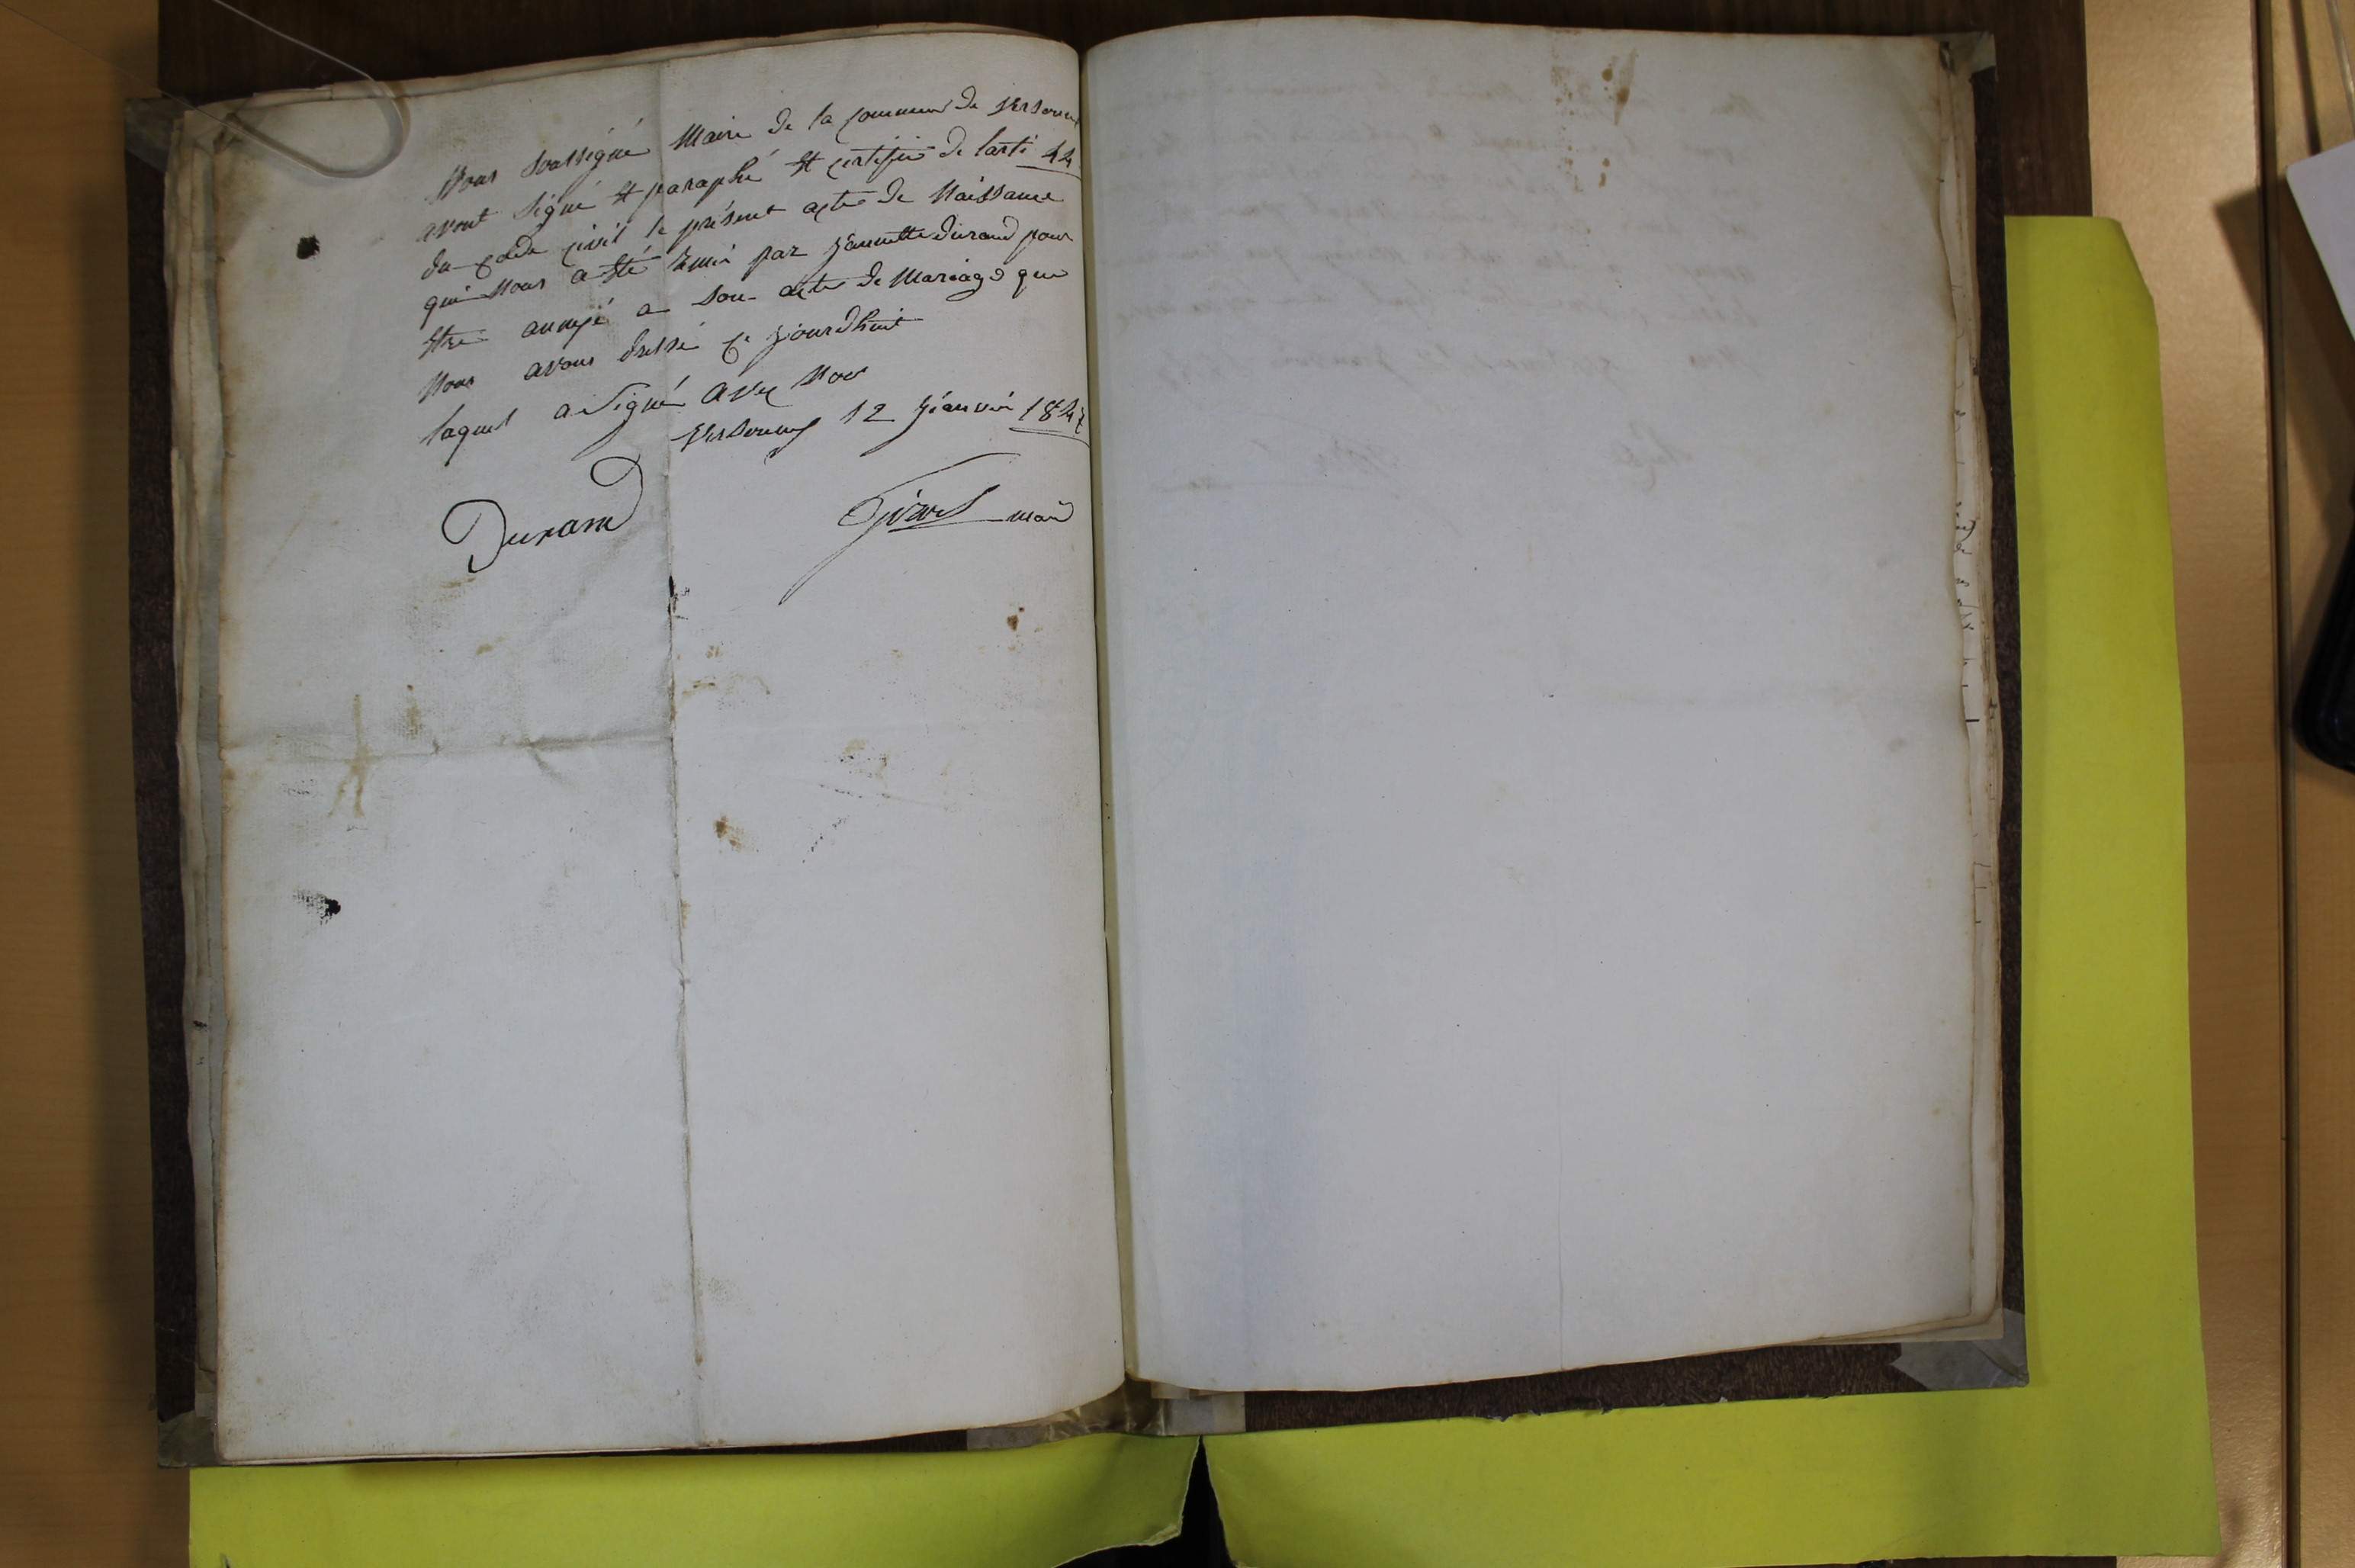 Nous soussigné Maire de la commune de Versonnex
avont signé et paraphé et certifié de larti 44
du code civil le présent acte de Naissance
qui nous a été remis par Jannette durand pour
être annexé a son acte de Mariage que
Nous avons dressé ce jourdhuit
laquel a signé avec nous
Versonnex 12 janvié 184
Durand
Girod maire